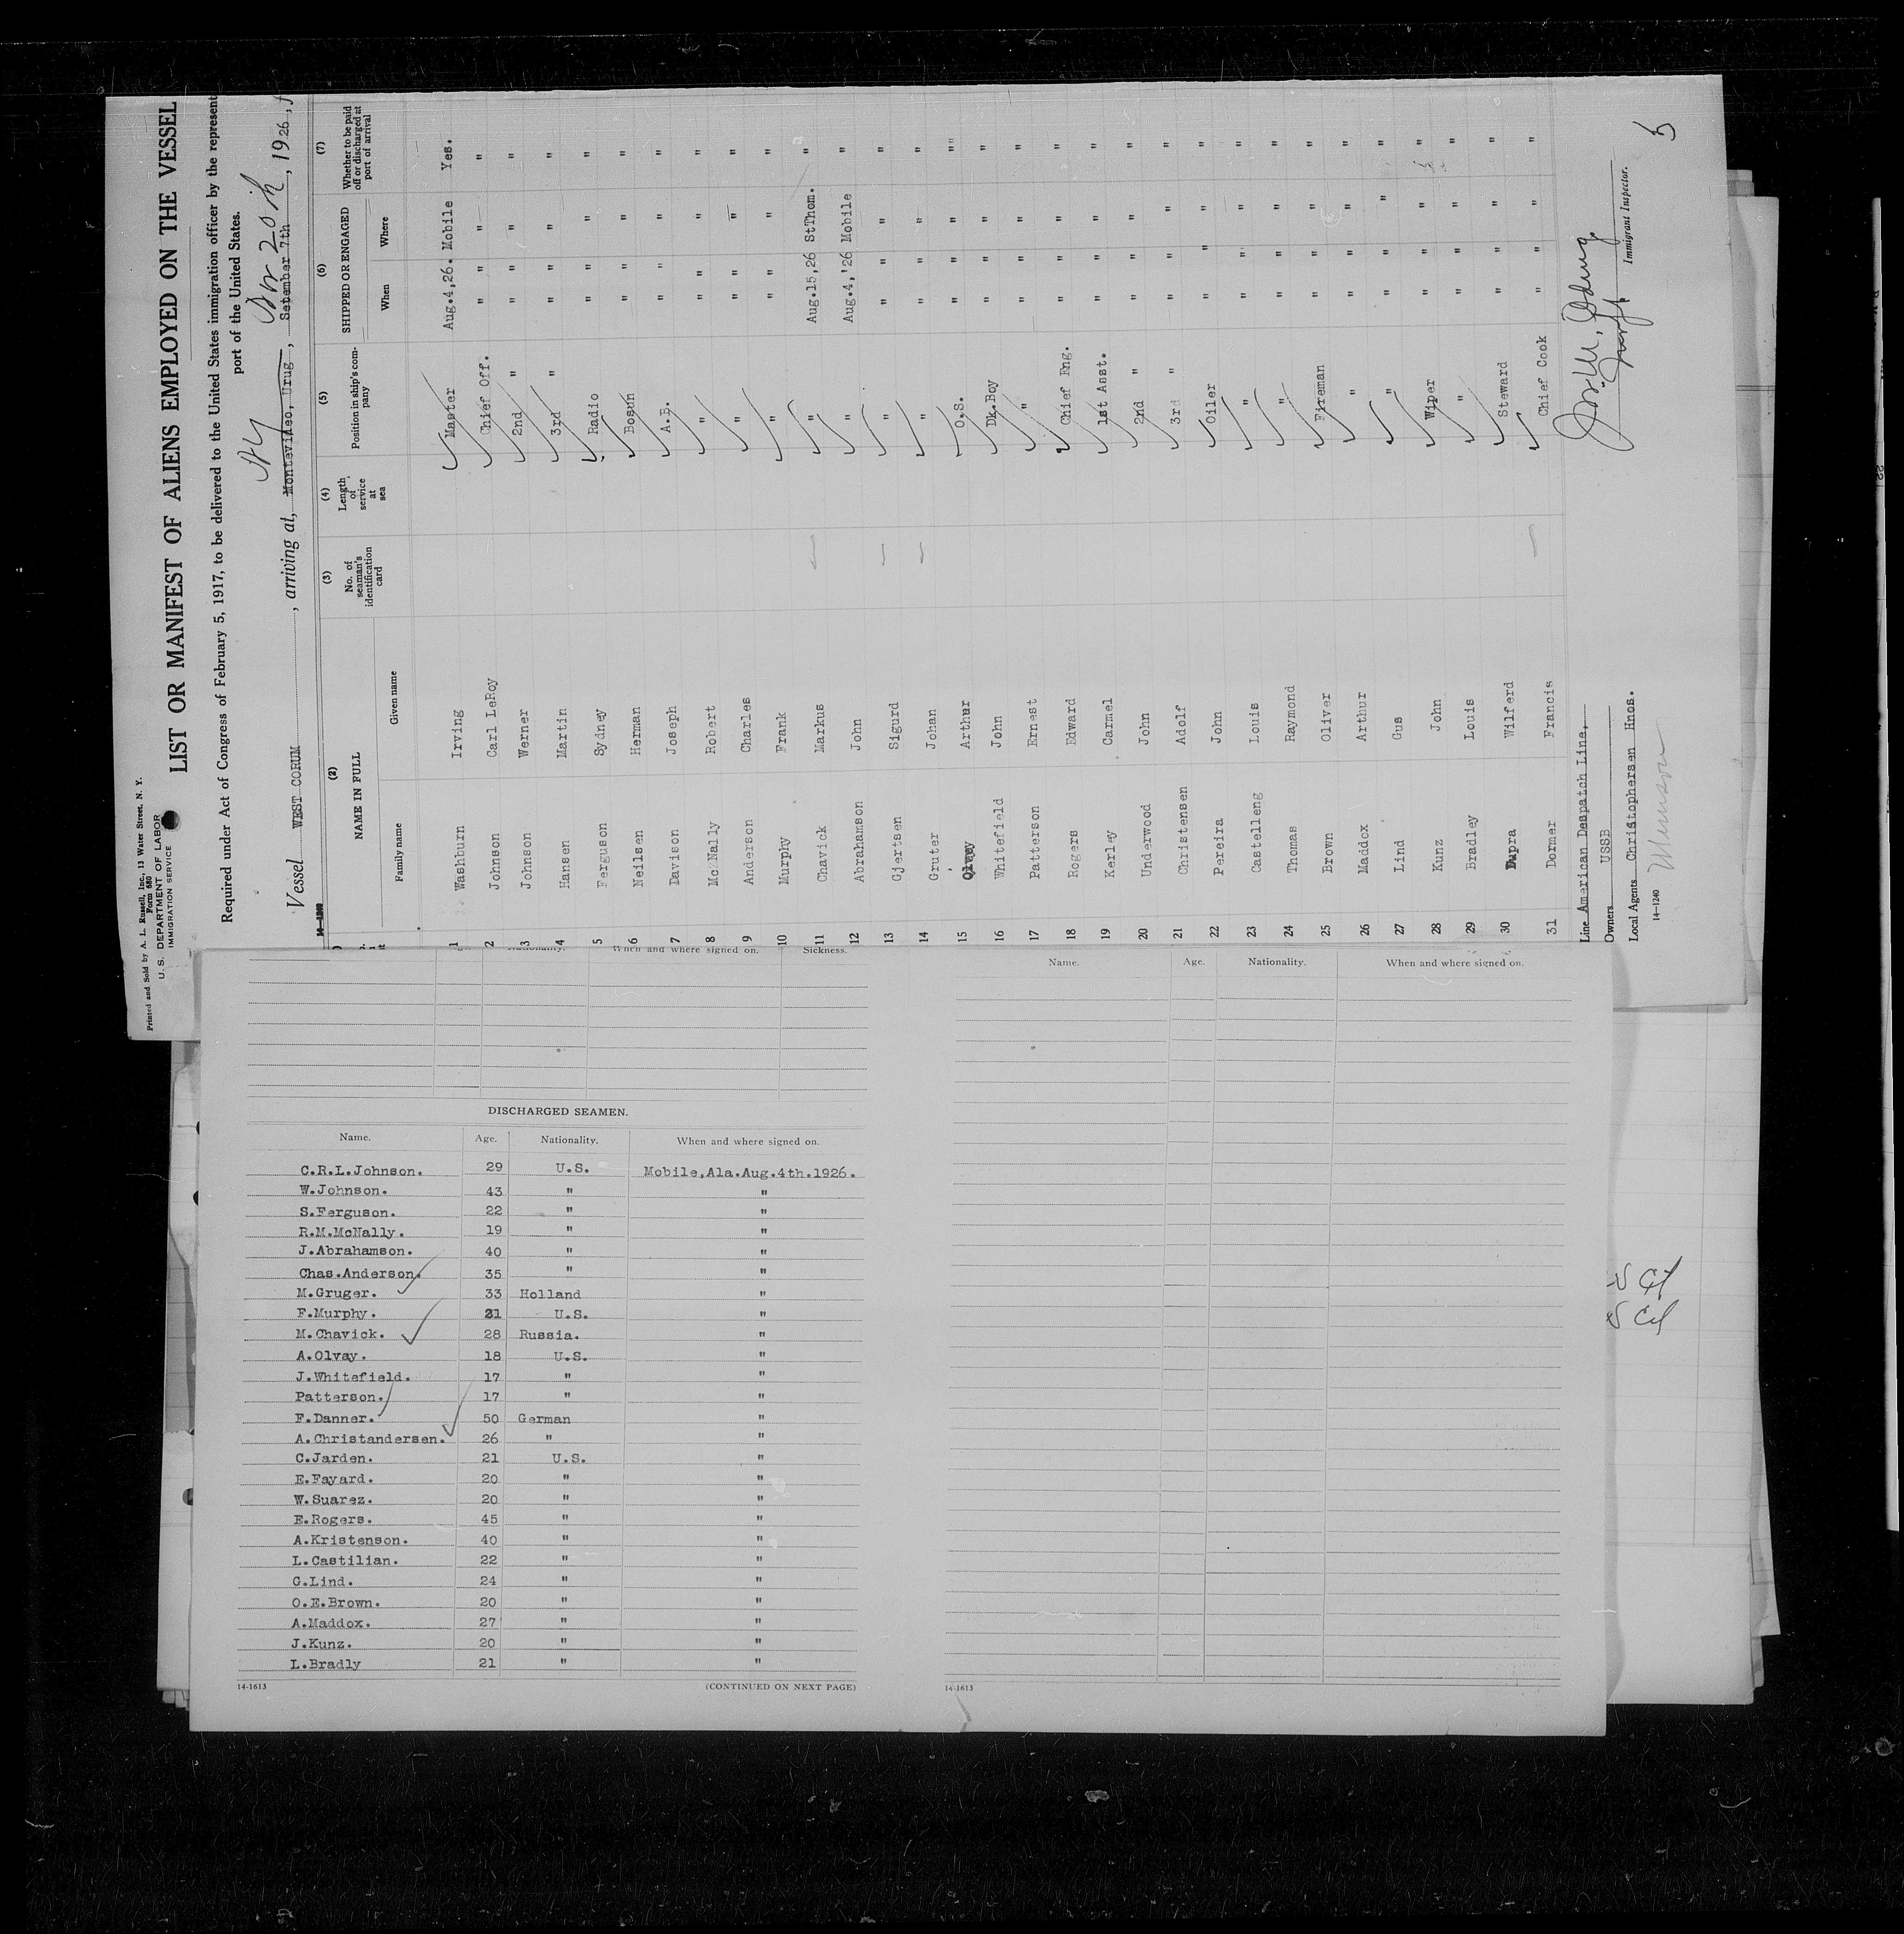 Printed and Sold by A. L. Russell, Inc., 13 Water Street, N. Y.
Form 680
U. S. DEPARTMENT OF LABOR
IMMIGRATION SERVICE
LIST OR MANIFEST OF ALIENS EMPLOYED ON THE VESSEL
Required under Act of Congress of February 5, 1917, to be delivered to the United States immigration officer by the represent
port of the United States.
Vessel WEST CORUM, arriving at, Montevideo, Urug, Setember 7th, 1926, f
NY
20th
14-1240
(2) (3) (4) (5) (6) (7)
NAME IN FULL No. of seaman's identification card Length of service at sea Position in ship's company SHIPPED OR ENGAGED Whether to be paid off or discharged at port of arrival
Family name Given name When Where
1 Washburn Irving Master Aug.4,26. Mobile Yes.
2 Johnson Carl LeRoy Chief Off. " " "
3 Johnson Werner 2nd " " " " "
4 Hansen Martin 3rd " " " " "
5 Ferguson Sydney Radio " " " "
6 Neilsen Herman Bosun " " " "
7 Davison Joseph A.B. " " " "
8 McNally Robert " " " " "
9 Anderson Charles " " " " "
10 Murphy Frank " " " " "
11 Chavick Markus " Aug.15,26 StThom. "
12 Abrahamson John " Aug.4,'26 Mobile "
13 Gjertsen Sigurd " " " " "
14 Gruter Johan " " " " "
15 Olvay Arthur O.S. " " " ""
16 Whitefield John Dk.Boy " " " "
17 Patterson Ernest " " " " "
18 Rogers Edward Chief Eng. " " " "
19 Kerley Carmel 1st Asst. " " " "
20 Underwood John 2nd " " " " "
21 Christensen Adolf 3rd " " " " "
22 Pereira John Oiler " " " "
23 Castelleng Louis " " " " "
24 Thomas Raymond " " " " "
25 Brown Oliver Fireman " " " "
26 Maddox Arthur " " " " "
27 Lind Gus " " " " "
28 Kunz John Wiper " " " "
29 Bradley Louis " " " " "
30 Dupra Wilferd Steward " " " "
31 Dormer Francis Chief Cook " " " "
Line American Despatch Line,
Owners USSB
Local Agents Christophersen Hnos.
14-1240
Munson
Immigrant Inspector.
5
Nationality. When and where signed on. Sickness.
Name. Age. Nationality. When and where signed on.
DISCHARGED SEAMEN.
Name. Age. Nationality. When and where signed on.
C.R.L.Johnson. 29 U.S. Mobile,Ala.Aug.4th.1926.
W.Johnson. 43 " "
S.Ferguson. 22 " "
R.M.McNally. 19 " "
J.Abrahamson. 40 " "
Chas.Anderson. 35 " "
M.Gruger. 33 Holland "
F.Murphy. 21 U.S. "
M.Chavick. 28 Russia. "
A.Olvay. 18 U.S. "
J.Whitefield. 17 " "
Patterson. 17 " "
F.Danner. 50 German "
A.Christandersen. 26 " "
C.Jarden. 21 U.S. "
E.Fayard. 20 " "
W.Suarez. 20 " "
E.Rogers. 45 " "
A.Kristenson. 40 " "
L.Castilian. 22 " "
G.Lind. 24 " "
O.E.Brown. 20 " "
A.Maddox. 27 " "
J.Kunz. 20 " "
L.Bradly 21 " "
14-1613 (CONTINUED ON NEXT PAGE)
14-1613